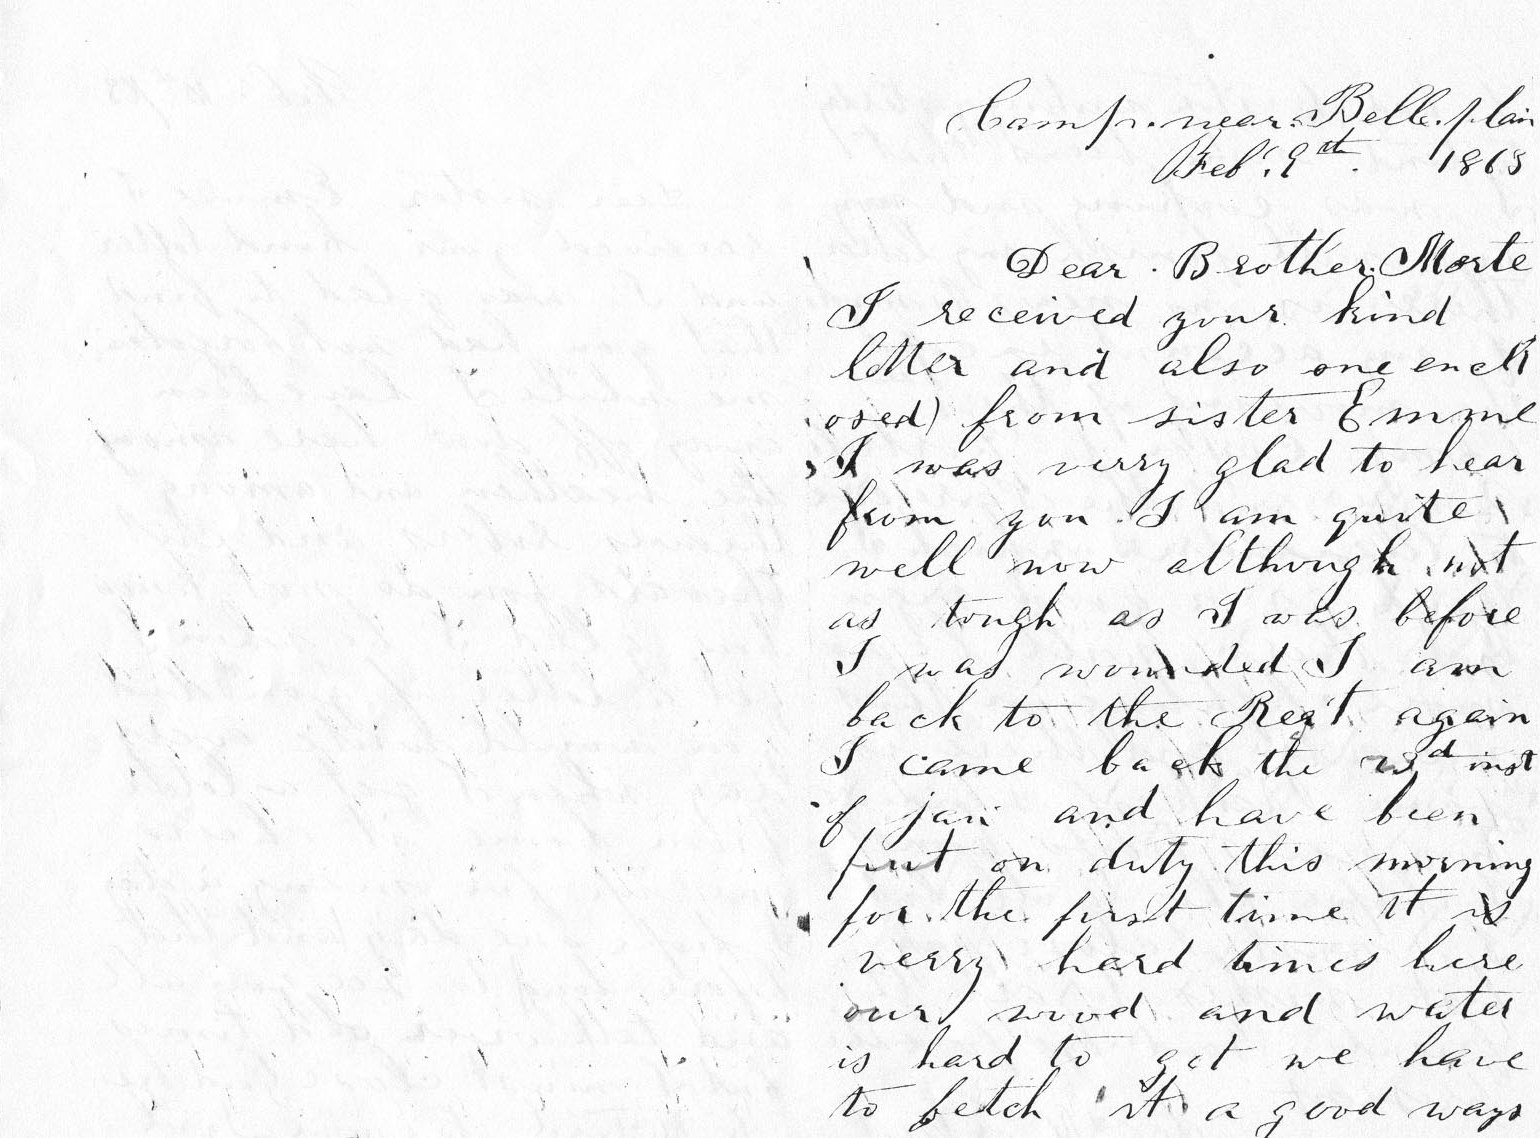 Camp. near. Bell. plain
Feb. 9th. 1863
Dear. Brother. Morte
I received your kind
letter and also one encl
osed) from sister Emme
I was verry glad to hear
from you. I am quite
well now although not
as tough as I was before
I was wounded I am
back to the Reg't again
I came back the inst
of jan and have been
put on duty this morning
for the first time it is
verry hard times here
our wood and water
is hard to get we have
to fetch it a good ways